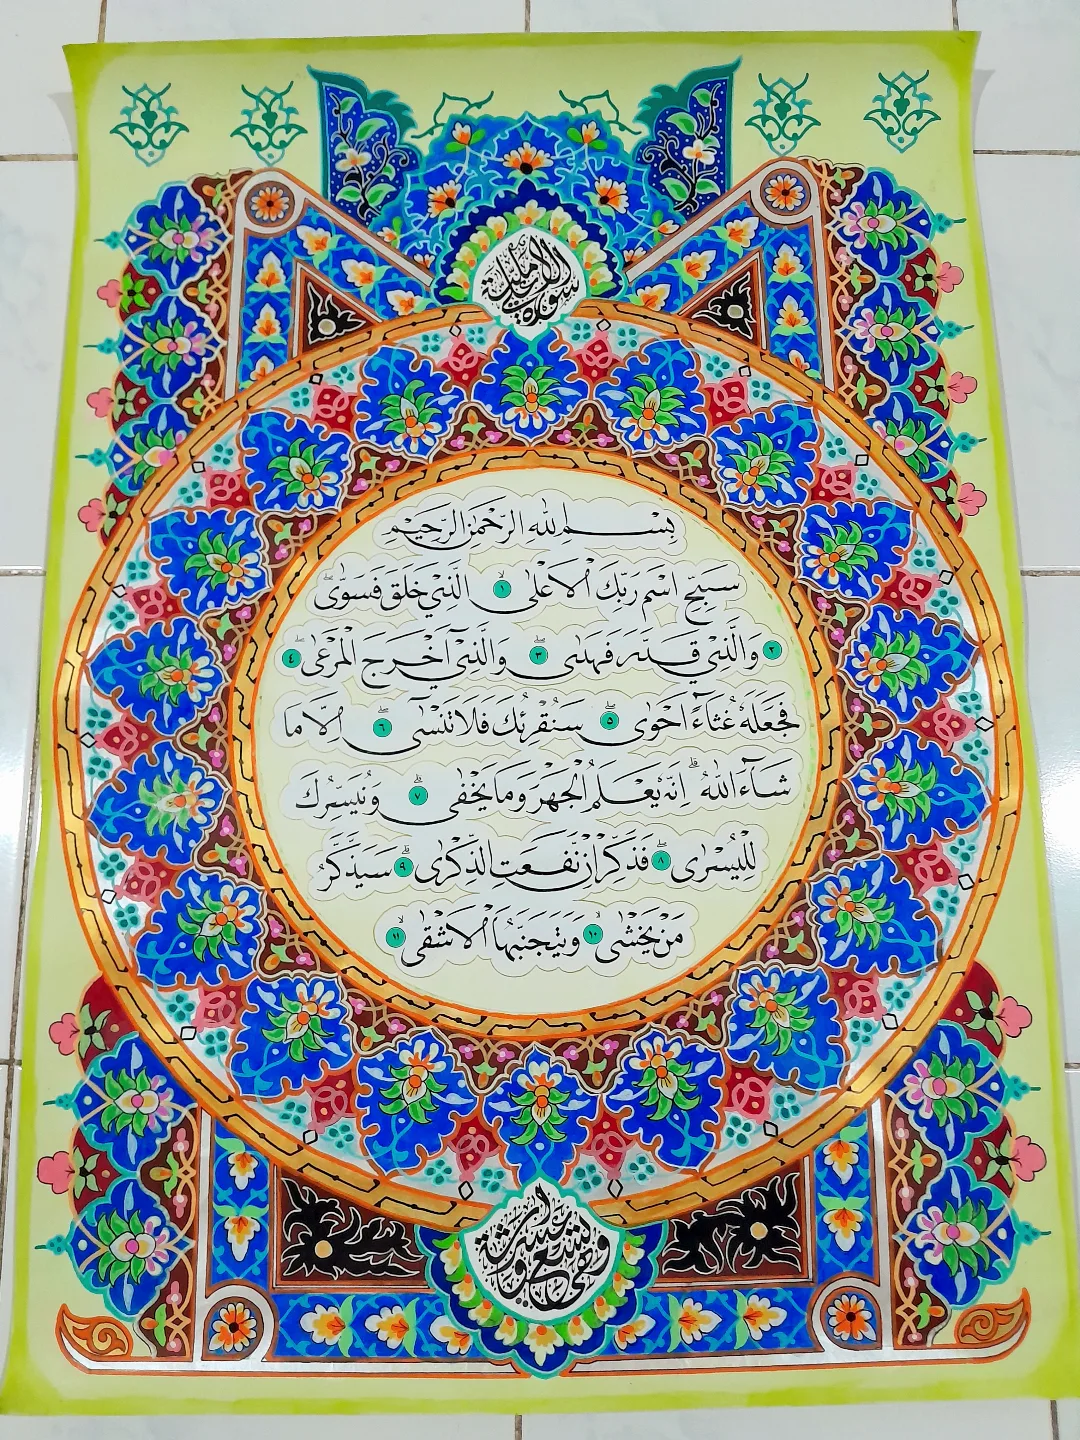 سورة الاعلى مكية
بِسْمِ اللهِ الرَّحْمٰنِ الرَّحِيْمِ
سَبِّحِ اسْمَ رَبِّكَ الْاَعْلَى ١ الَّذِيْ خَلَقَ فَسَوّٰى
٢ وَالَّذِيْ قَدَّرَ فَهَدٰى ٣ وَالَّذِيْٓ اَخْرَجَ الْمَرْعٰى ٤
فَجَعَلَهٗ غُثَاۤءً اَحْوٰى ٥ سَنُقْرِئُكَ فَلَا تَنْسٰى ٦ اِلَّا مَا
شَاۤءَ اللّٰهُ اِنَّهٗ يَعْلَمُ الْجَهْرَ وَمَا يَخْفٰى ٧ وَنُيَسِّرُكَ
لِلْيُسْرٰى ٨ فَذَكِّرْ اِنْ نَّفَعَتِ الذِّكْرٰى ٩ سَيَذَّكَّرُ
مَنْ يَّخْشٰى ١٠ وَيَتَجَنَّبُهَا الْاَشْقَى ١١
وهي تسع عشرة اية